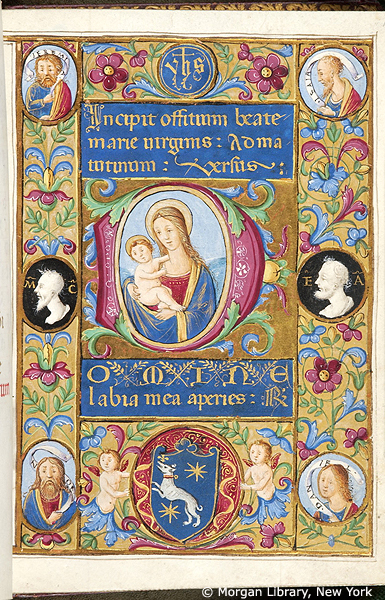 yhs
Incipit offitium beate
marie virginis: Ad ma
tutinum: Versus:
M C
F A
D
OMINE
labia mea aperies: R
© Morgan Library, New York